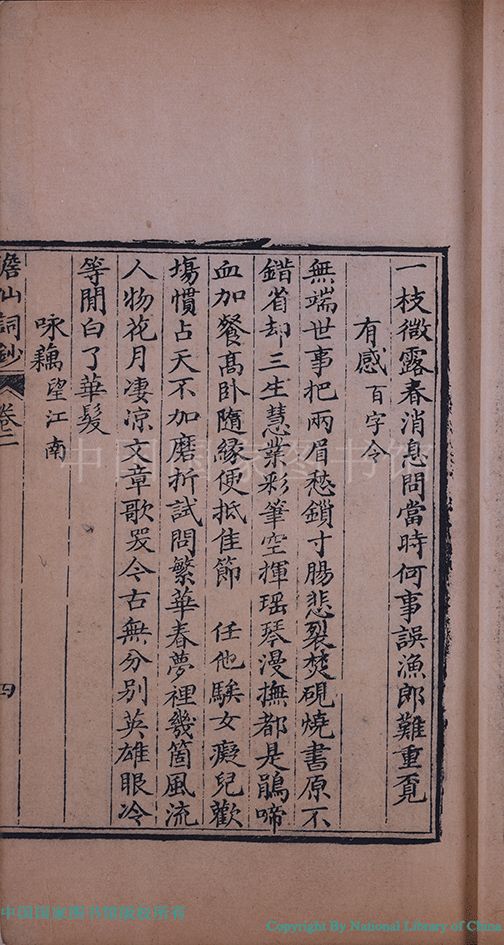 一枝微露春消息問當時何事誤漁郎難重覓
有感 百字令
無端世事把兩眉愁鎖寸腸悲裂焚硯燒書原不
錯省却三生慧業彩筆空揮瑶琴漫撫都是鵑啼
血加餐髙卧隨緣便抵佳節 任他騃女癡兒歡
塲慣占天不加磨折試問繁華春夢裡幾箇風流
人物花月凄凉文章歌哭今古無分别英雄眼冷
等閒白了華髪
咏藕 望江南
澹仙詞鈔 卷二 四
中国国家图书馆
中国国家图书馆版权所有
Copyright By National Library of China